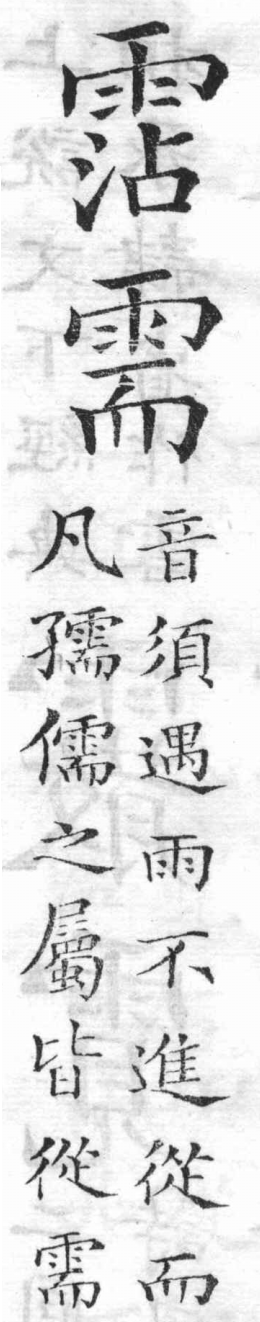 霑需
音須遇雨不進從而
凡孺儒之屬皆從需